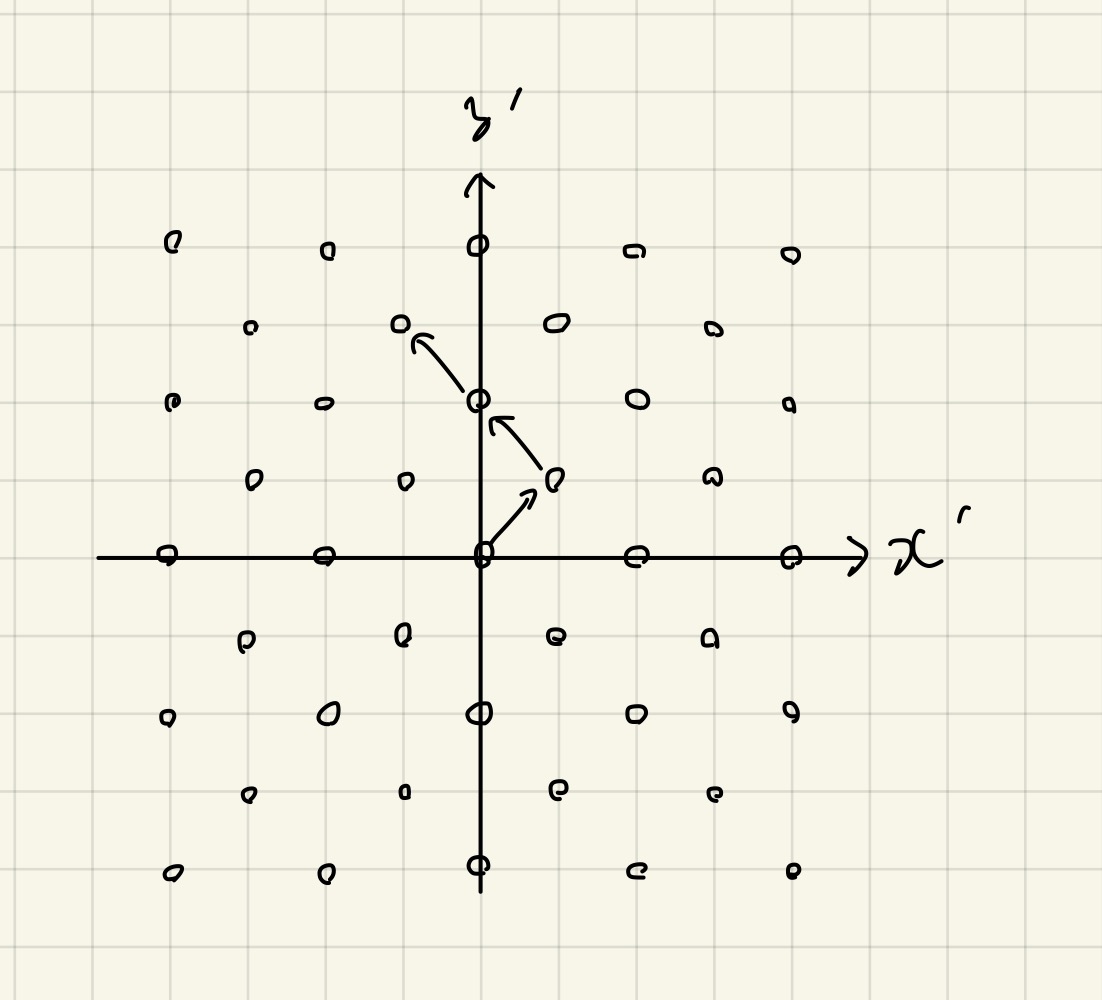 y'
x'